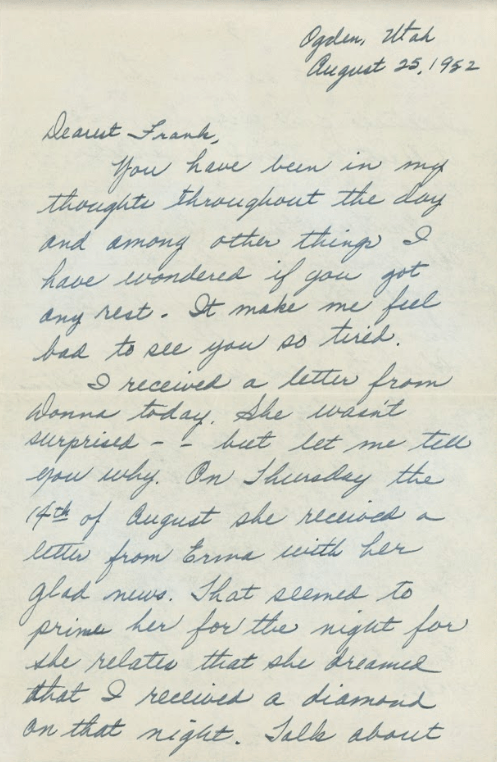 Ogden, Utah
August 25, 1952
Dearest Frank,
You have been in my
thoughts throughout the day
and among other things I
have wondered if you got
any rest. It make me feel
bad to see you so tired.
I received a letter from
Donna today. She wasn't
surprised - - but let me tell
you why. On Thursday the
14th of August she received a
letter from Erma with her
glad news. That seemed to
prime her for the night for
she relates that she dreamed
that I received a diamond
on that night. Talk about